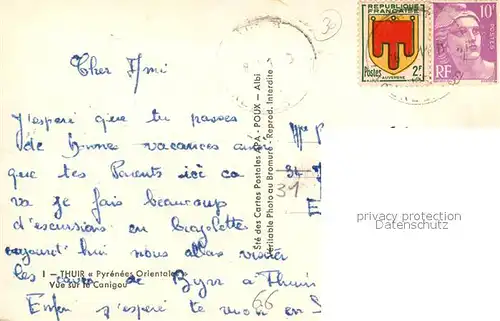 Cher Ami
J'esperé que tu passes
de bonnes vacances
que tes Parents ici ca
va je fais beaucoup
d'escursions en bicyclette
aujourd'hui nous allons visiter
les caves de Byrr à Thuir
Enfin j'esperé te voir en
1 - THUIR « Pyrénées Orientales »
Vue sur le Canigou
Sté des Cartes Postales APA - POUX - Albi
Véritable Photo au Bromure - Reprod. Interdite
REPUBLIQUE
FRANÇAISE
Postes 2F
AUVERGNE
10F
POSTES
RF
31
66
privacy protection
Datenschutz